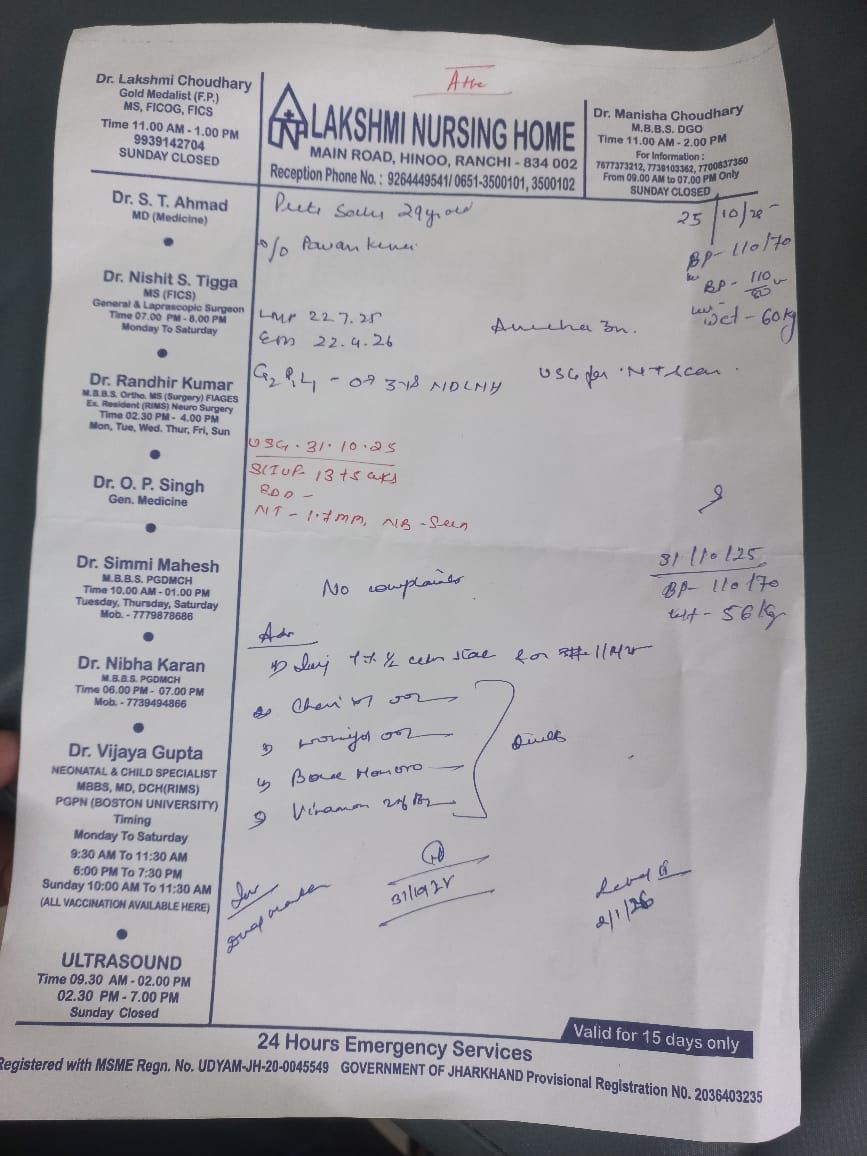 Dr. Lakshmi Choudhary
Gold Medalist (F.P.)
MS, FICOG, FICS
Time 11.00 AM - 1.00 PM
9939142704
SUNDAY CLOSED
LAKSHMI NURSING HOME
MAIN ROAD, HINOO, RANCHI - 834 002
Reception Phone No. : 9264449541/ 0651-3500101, 3500102
Dr. Manisha Choudhary
M.B.B.S. DGO
Time 11.00 AM - 2.00 PM
For Information :
7677373212, 7739103362, 7700837350
From 09.00 AM to 07.00 PM Only
SUNDAY CLOSED
Dr. S. T. Ahmad
MD (Medicine)
Dr. Nishit S. Tigga
MS (FICS)
General & Laprascopic Surgeon
Time 07.00 PM - 8.00 PM
Monday To Saturday
Dr. Randhir Kumar
M.B.B.S. Ortho. MS (Surgery) FIAGES
Ex. Resident (RIMS) Neuro Surgery
Time 02.30 PM - 4.00 PM
Mon, Tue, Wed. Thur, Fri, Sun
Dr. O. P. Singh
Gen. Medicine
Dr. Simmi Mahesh
M.B.B.S. PGDMCH
Time 10.00 AM - 01.00 PM
Tuesday, Thursday, Saturday
Mob. - 7779878686
Dr. Nibha Karan
M.B.B.S. PGDMCH
Time 06.00 PM - 07.00 PM
Mob. - 7739494866
Dr. Vijaya Gupta
NEONATAL & CHILD SPECIALIST
MBBS, MD, DCH(RIMS)
PGPN (BOSTON UNIVERSITY)
Timing
Monday To Saturday
9:30 AM To 11:30 AM
6:00 PM To 7:30 PM
Sunday 10:00 AM To 11:30 AM
(ALL VACCINATION AVAILABLE HERE)
ULTRASOUND
Time 09.30 AM - 02.00 PM
02.30 PM - 7.00 PM
Sunday Closed
29 yr old
25/10/25
BP- 110/70
BP- 110/80
60 kg
LMP 22.7.25
22.4.26
USG for NT scan
USG. 31.10.25
13+5 wks
EDD -
NT - 1.7mm, NB - Seen
31/10/25
BP- 110/70
wt - 56kg
No complaints
Adv
31/10/25
2/1/26
Valid for 15 days only
24 Hours Emergency Services
Registered with MSME Regn. No. UDYAM-JH-20-0045549 GOVERNMENT OF JHARKHAND Provisional Registration N0. 2036403235